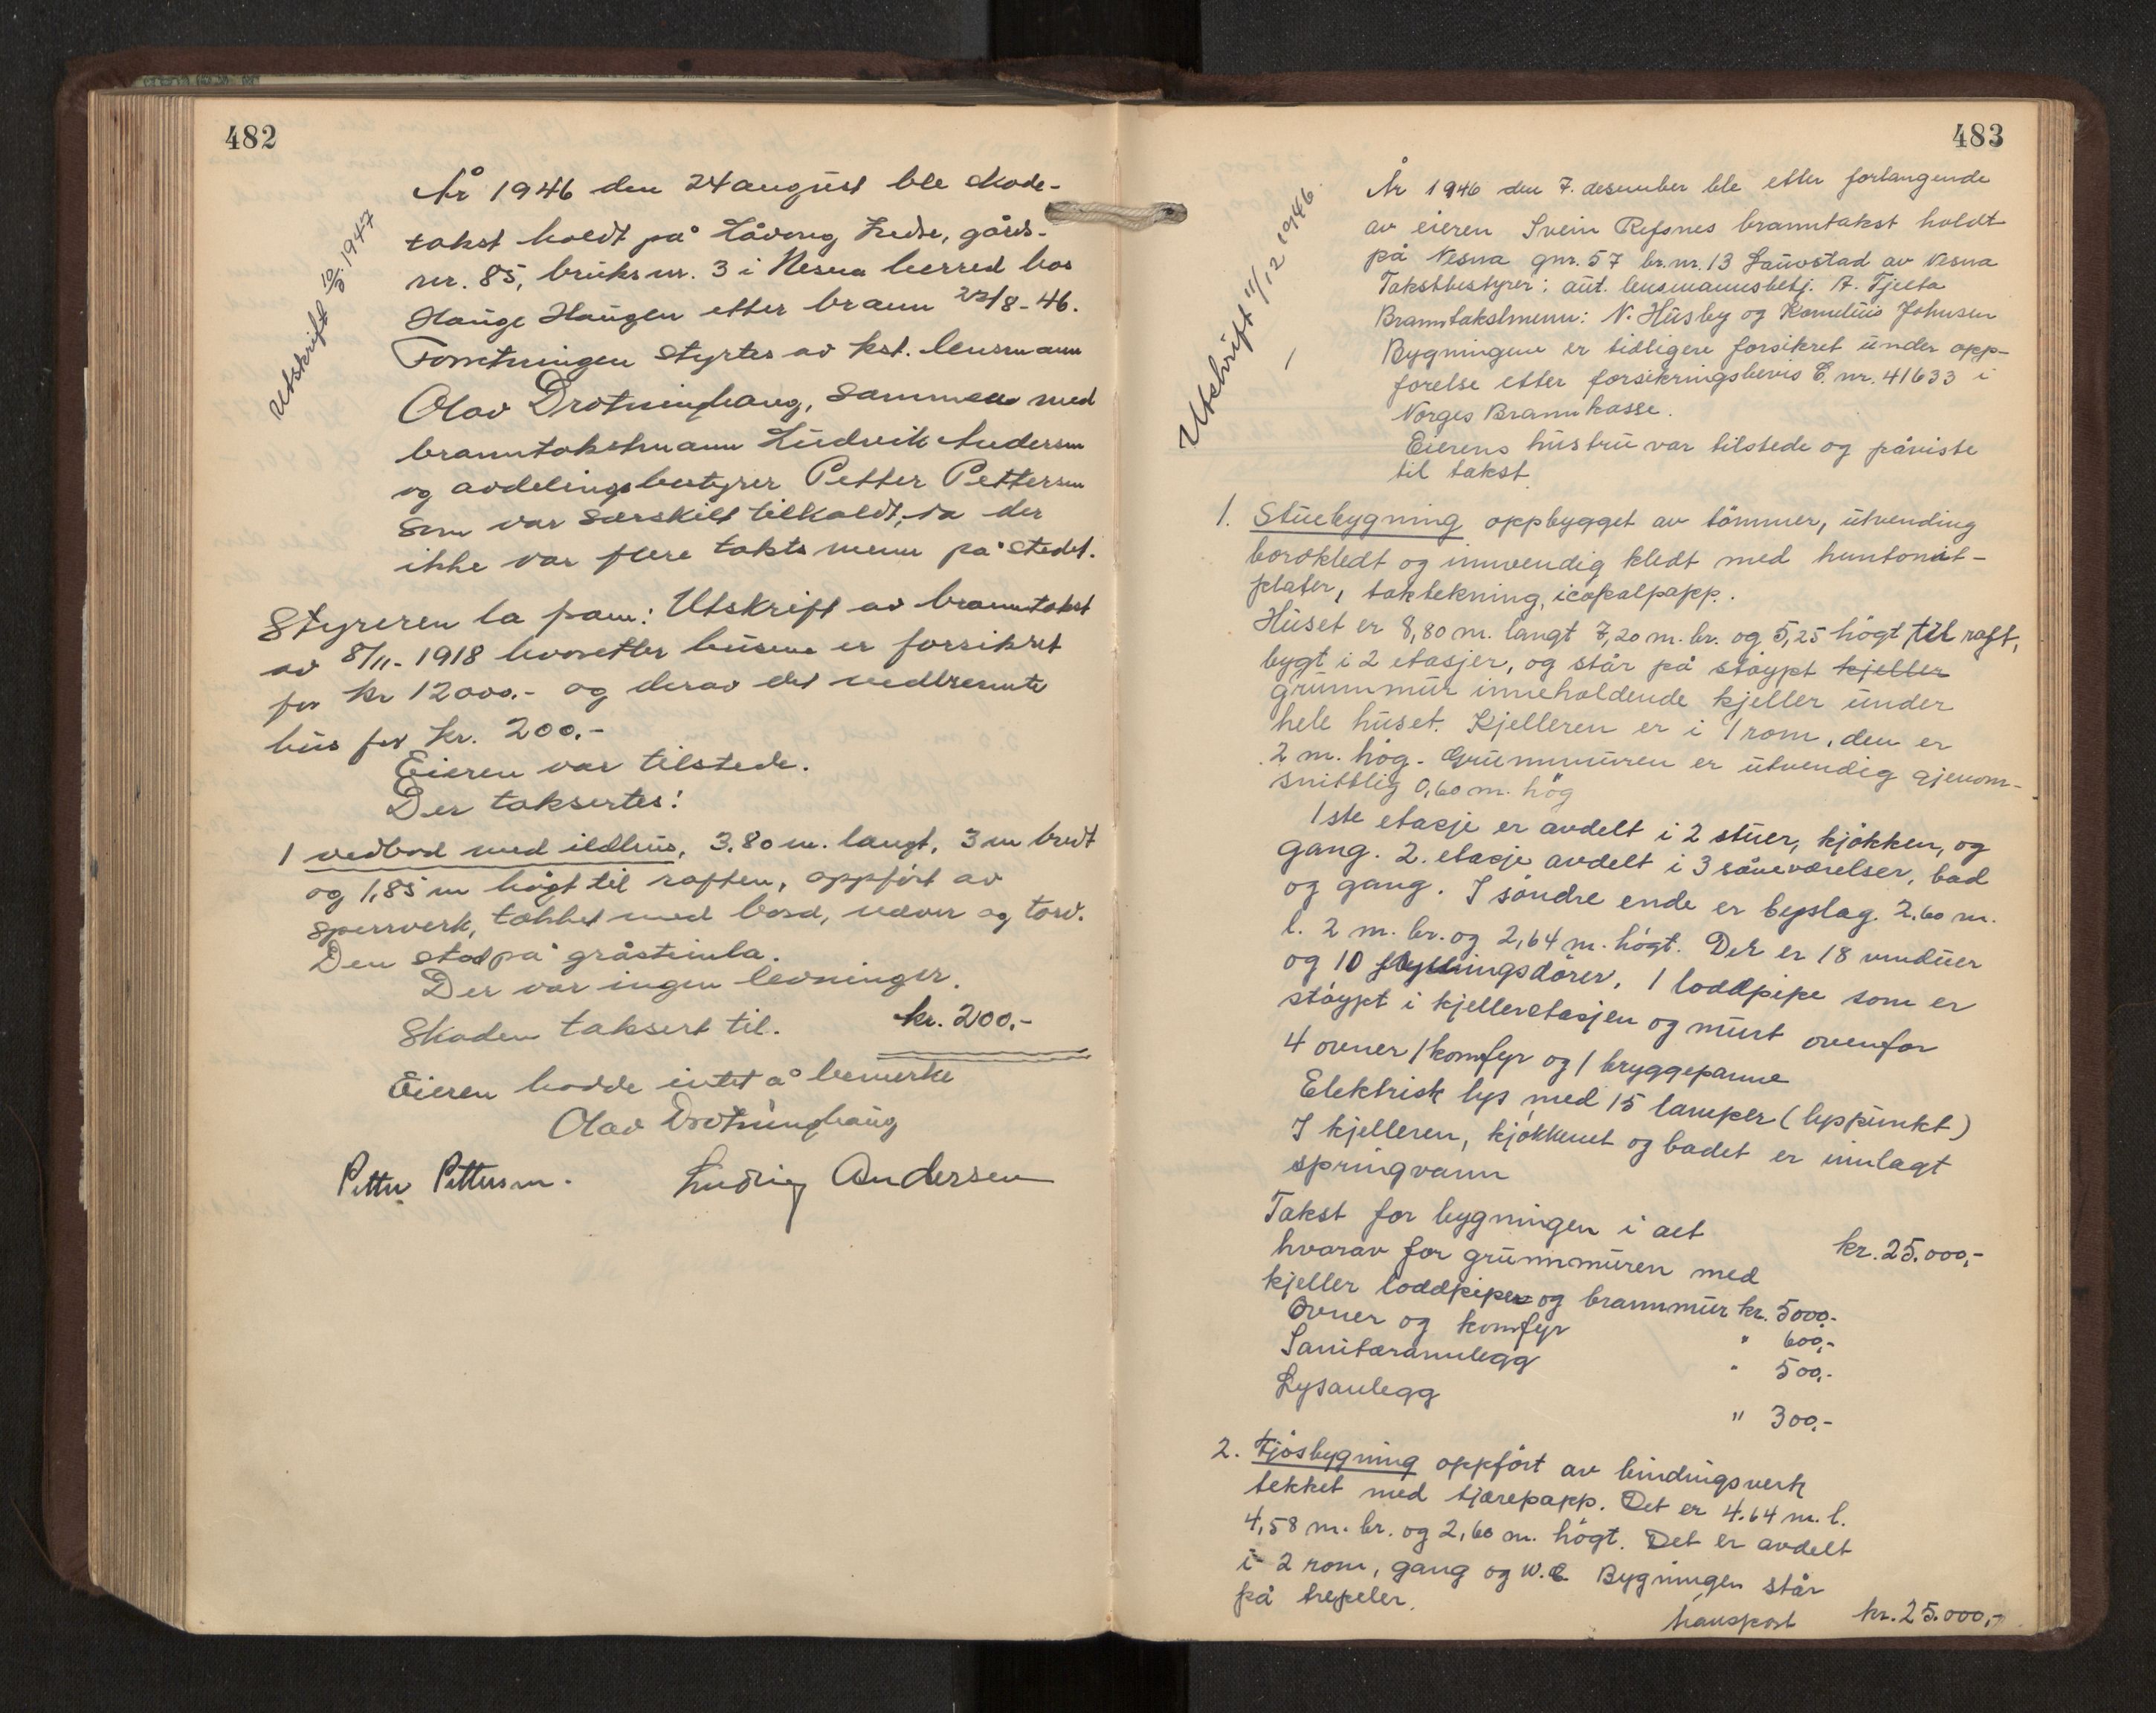 482
Utskrift 10/3. 1947
År 1946 den 24 august ble skade-
takst holdt på Låvong Nedre, gårds-
nr. 85, bruksnr. 3 i Nesna herred hos
Hauge Haugen etter brann 22/8-46.
Forretningen styrtes av kst. lensmann
Olav Drotninghaug, sammen med
branntakstmann Ludvik Andersen
og avdelingsbestyrer Petter Pettersen
som var særskilt tilkaldt, da der
ikke var flere takstmenn på stedet.
Styreren la fram: Utskrift av branntakst
av 8/11-1918 hvoretter husene er forsikret
for kr 12000.- og derav det nedbrente
hus for kr. 200.-
Eieren var tilstede.
Der taksertes:
1 vedbod med ildhus, 3.80 m. langt, 3 m bredt
og 1,85 m høgt til raften, oppført av
sperrverk, tekket med bord, never og torv.
Den stod på gråsteinla.
Der var ingen levninger.
Skaden taksert til. kr. 200.-
Eieren hadde intet å bemerke
Olav Drotninghaug
Petter Pettersen. Ludvig Andersen
483
Utskrift 11/12 1946.
År 1946 den 7. desember ble etter forlangende
av eieren Svein Refsnes branntakst holdt
på Nesna gnr. 57 br.nr. 13 Lauvstad av Nesna
Takstbestyrer: aut. lensmannsbetj. A. Fjelta
Branntakstmenn: N. Husby og Kornelius Johnsen
Bygningene er tidligere forsikret under opp-
førelse etter forsikringsbevis E. nr. 41633 i
Norges Brannkasse.
Eierens hustru var tilstede og påviste
til takst.
1. Stuebygning oppbygget av tømmer, utvending
bordkledt og innvendig kledt med huntonit-
plater, taktekning, icopalpapp.
Huset er 8,80 m. langt 7,20 m. br. og 5,25 høgt til raft,
bygt i 2 etasjer, og står på støypt kjeller
grunnmur inneholdende kjeller under
hele huset. Kjelleren er i 1 rom, den er
2 m. høg. Grunnmuren er utvendig gjenom-
snittlig 0,60 m. høg
1ste etasje er avdelt i 2 stuer, kjøkken, og
gang. 2. etasje avdelt i 3 soveværelser, bad
og gang. I søndre ende er bislag 2.60 m.
l. 2 m. br. og 2,64 m. høgt. Det er 18 vinduer
og 10 fyllingsdører, 1 loddpipe som er
støypt i kjelleretasjen og murt ovenfor
4 ovner 1 komfyr og 1 bryggepanne
Elektrisk lys med 15 lamper (lyspunkt)
I kjelleren, kjøkkenet og badet er innlagt
springvann
Takst for bygningen i alt kr. 25.000,-
hvorav for grunnmuren med
kjeller loddpiper og brannmur kr. 5000.-
Ovner og komfyr " 600,-
Sanitæranlegg " 500,-
Lysanlegg " 300,-
2. Fjøsbygning oppført av bindingsverk
tekket med tjærepapp. Det er 4.64 m. l.
4,58 m. br. og 2,60 m. høgt. Det er avdelt
i 2 rom, gang og W.C. Bygningen står
på trepeler.
transport kr. 25.000,-